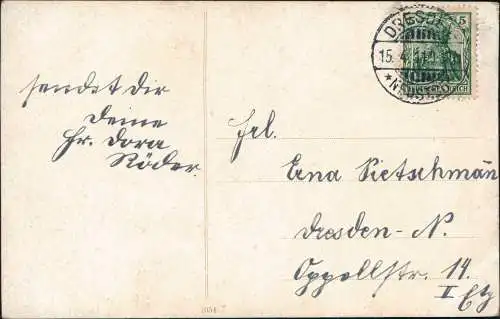 sendet Dir
Deine
Fr. Dora
Röder.
DRESDEN
15. 4. 11
* NEUSTADT
5
REICH
Frl.
Erna Pietschmann
Dresden-N.
Oppellstr. 14.
II Etg